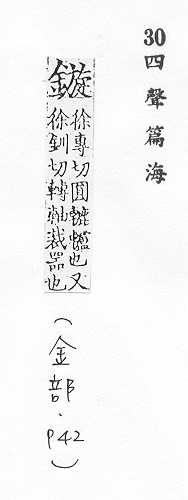 30四聲篇海
鏇 徐專切圓轆轤也又
徐釧切轉軸裁器也
(金部.P42)